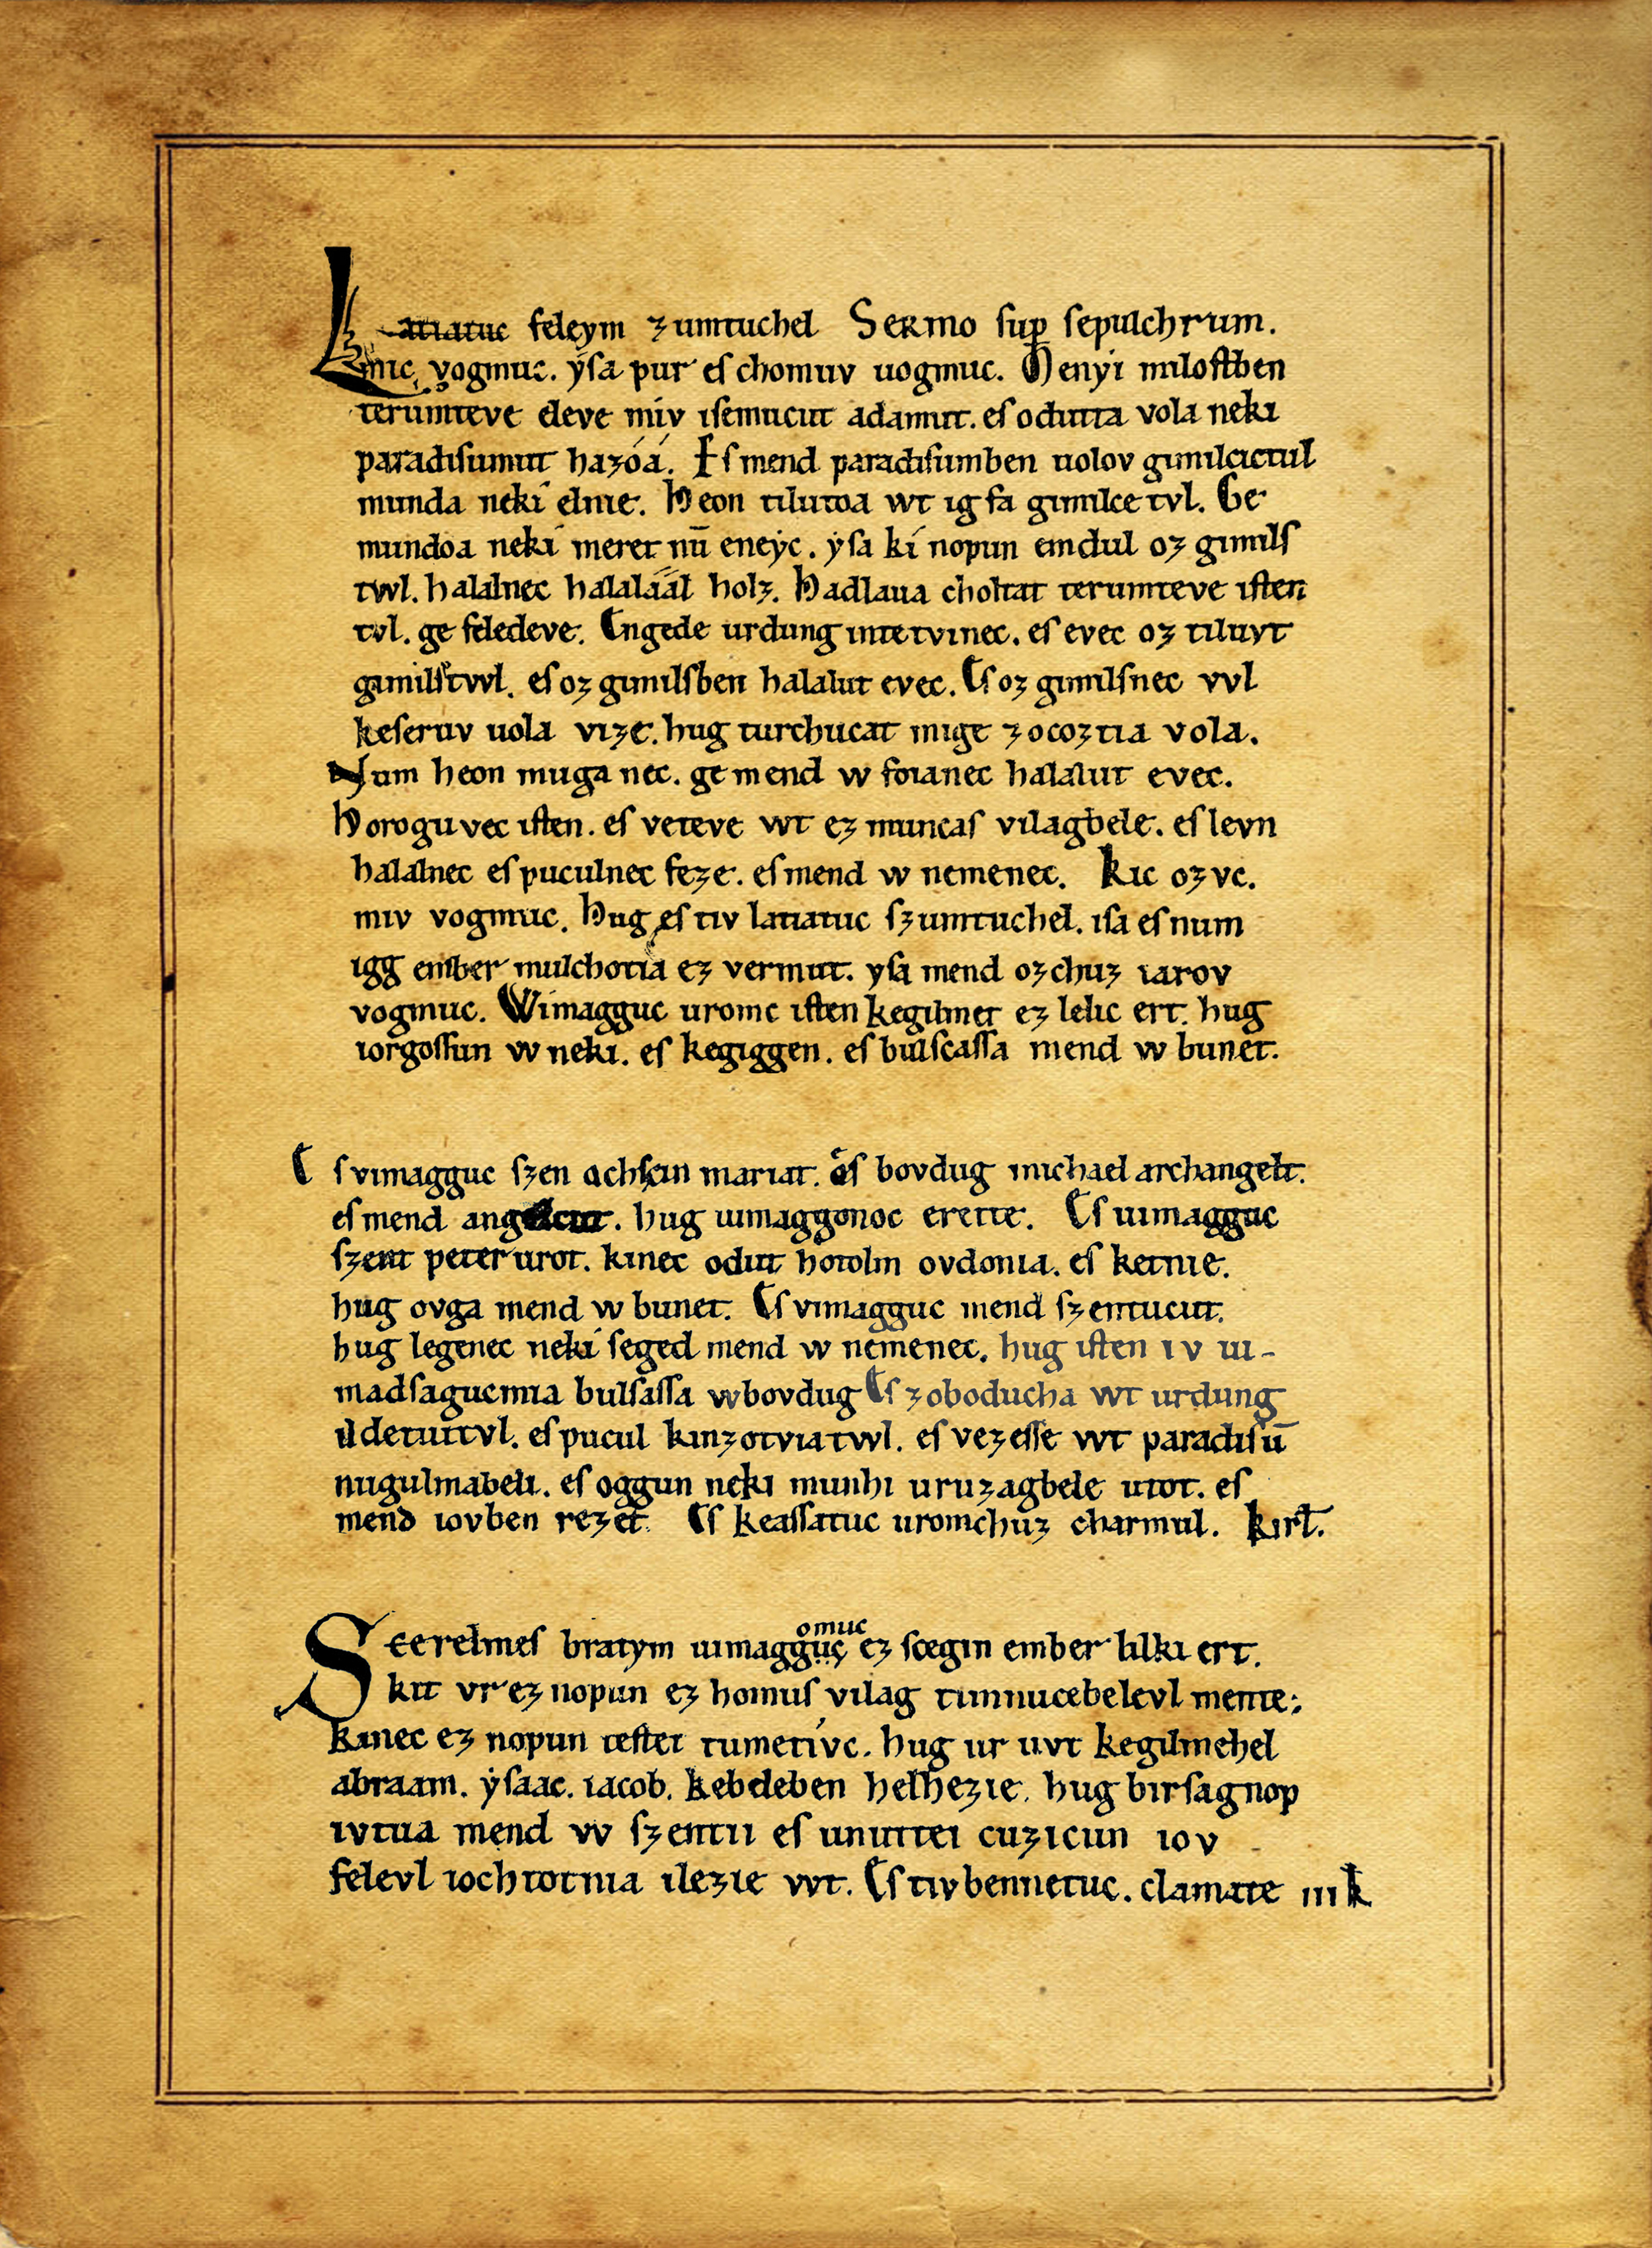 Latiatuc feleym zumtuchel Sermo sup sepulchrum.
mic vogmuc. ysa pur es chomuv uogmuc. Menyi milostben
terumteve eleve miv isemucut adamut. es odutta vola neki
paradisumut hazóá. Es mend paradisumben uolov gimilcictul
munda neki elnie. Heon tilutoa wt ig fa gimilce tvl. Ge
mundoa neki meret nū eneyc. ysa ki nopun emdul oz gimils
twl. halalnec halaláál holz. Hadlaua choltat terumteve isten
tvl. ge feledeve. Engede urdung intetvinec. es evec oz tiluvt
gimilstwl. es oz gimilsben halalut evec. Es oz gimilsnec vvl
keseruv uola vize. hug turchucat mige zocoztia vola.
Num heon muga nec. ge mend w foianec halalut evec.
Horoguvec isten. es veteve wt ez muncas vilagbele. es levn
halalnec es puculnec feze. es mend w nemenec. Kic ozvc.
miv vogmuc. Hug es tiv latiatuc szumtuchel. isa es num
igg ember mulchotia ez vermut. ysa mend ozchuz iarov
vogmuc. Wimagguc uromc isten kegilmet ez lelic ert. hug
iorgossun w neki. es kegiggen. es bulscassa mend w bunet.
Es vimagguc szen achscin mariat. es bovdug michael archangelt.
es mend angelcut. hug uimaggonoc erette. Es uimagguc
szent peter urot. kinec odut hotolm ovdonia. es ketnie.
hug ovga mend w bunet. Es vimagguc mend szentucut.
hug legenec neki seged mend w nemenec. hug isten iv ui-
madsaguemia bulsassa w bovdug Es zoboducha wt urdung
ildetuitvl. es pucul kinzotviatwl. es vezesse wt paradisū
nugulmabeli. es oggun neki munhi uruzagbele utot. es
mend iovben rezet. Es keassatuc uromchuz charmul. kirl.
Scerelmes bratym uimagguc omuc ez scegin ember lilki ert.
kit vr ez nopun ez homus vilag timnucebelevl mente;
kinec ez nopun testet tumetivc. hug ur uvt kegilmehel
abraam. ysaac. iacob. kebeleben helhezie. hug birsagnop
ivtua mend w szentii es unuttei cuzicun iov
felevl iochtotnia ilezie wt. Es tiv bennetuc. clamate iii k